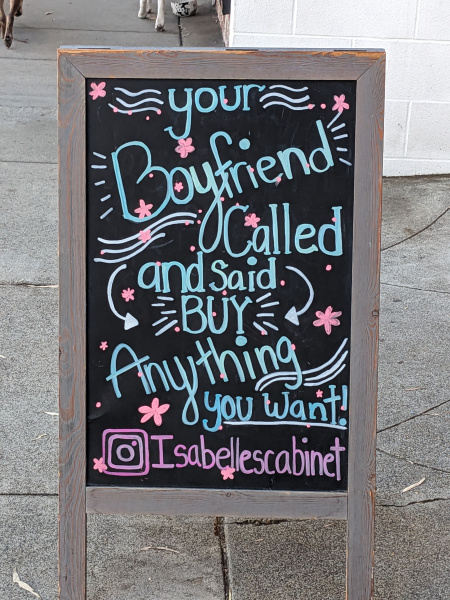 your
Boyfriend
Called
and said
BUY
Anything
you want!
Isabellescabinet